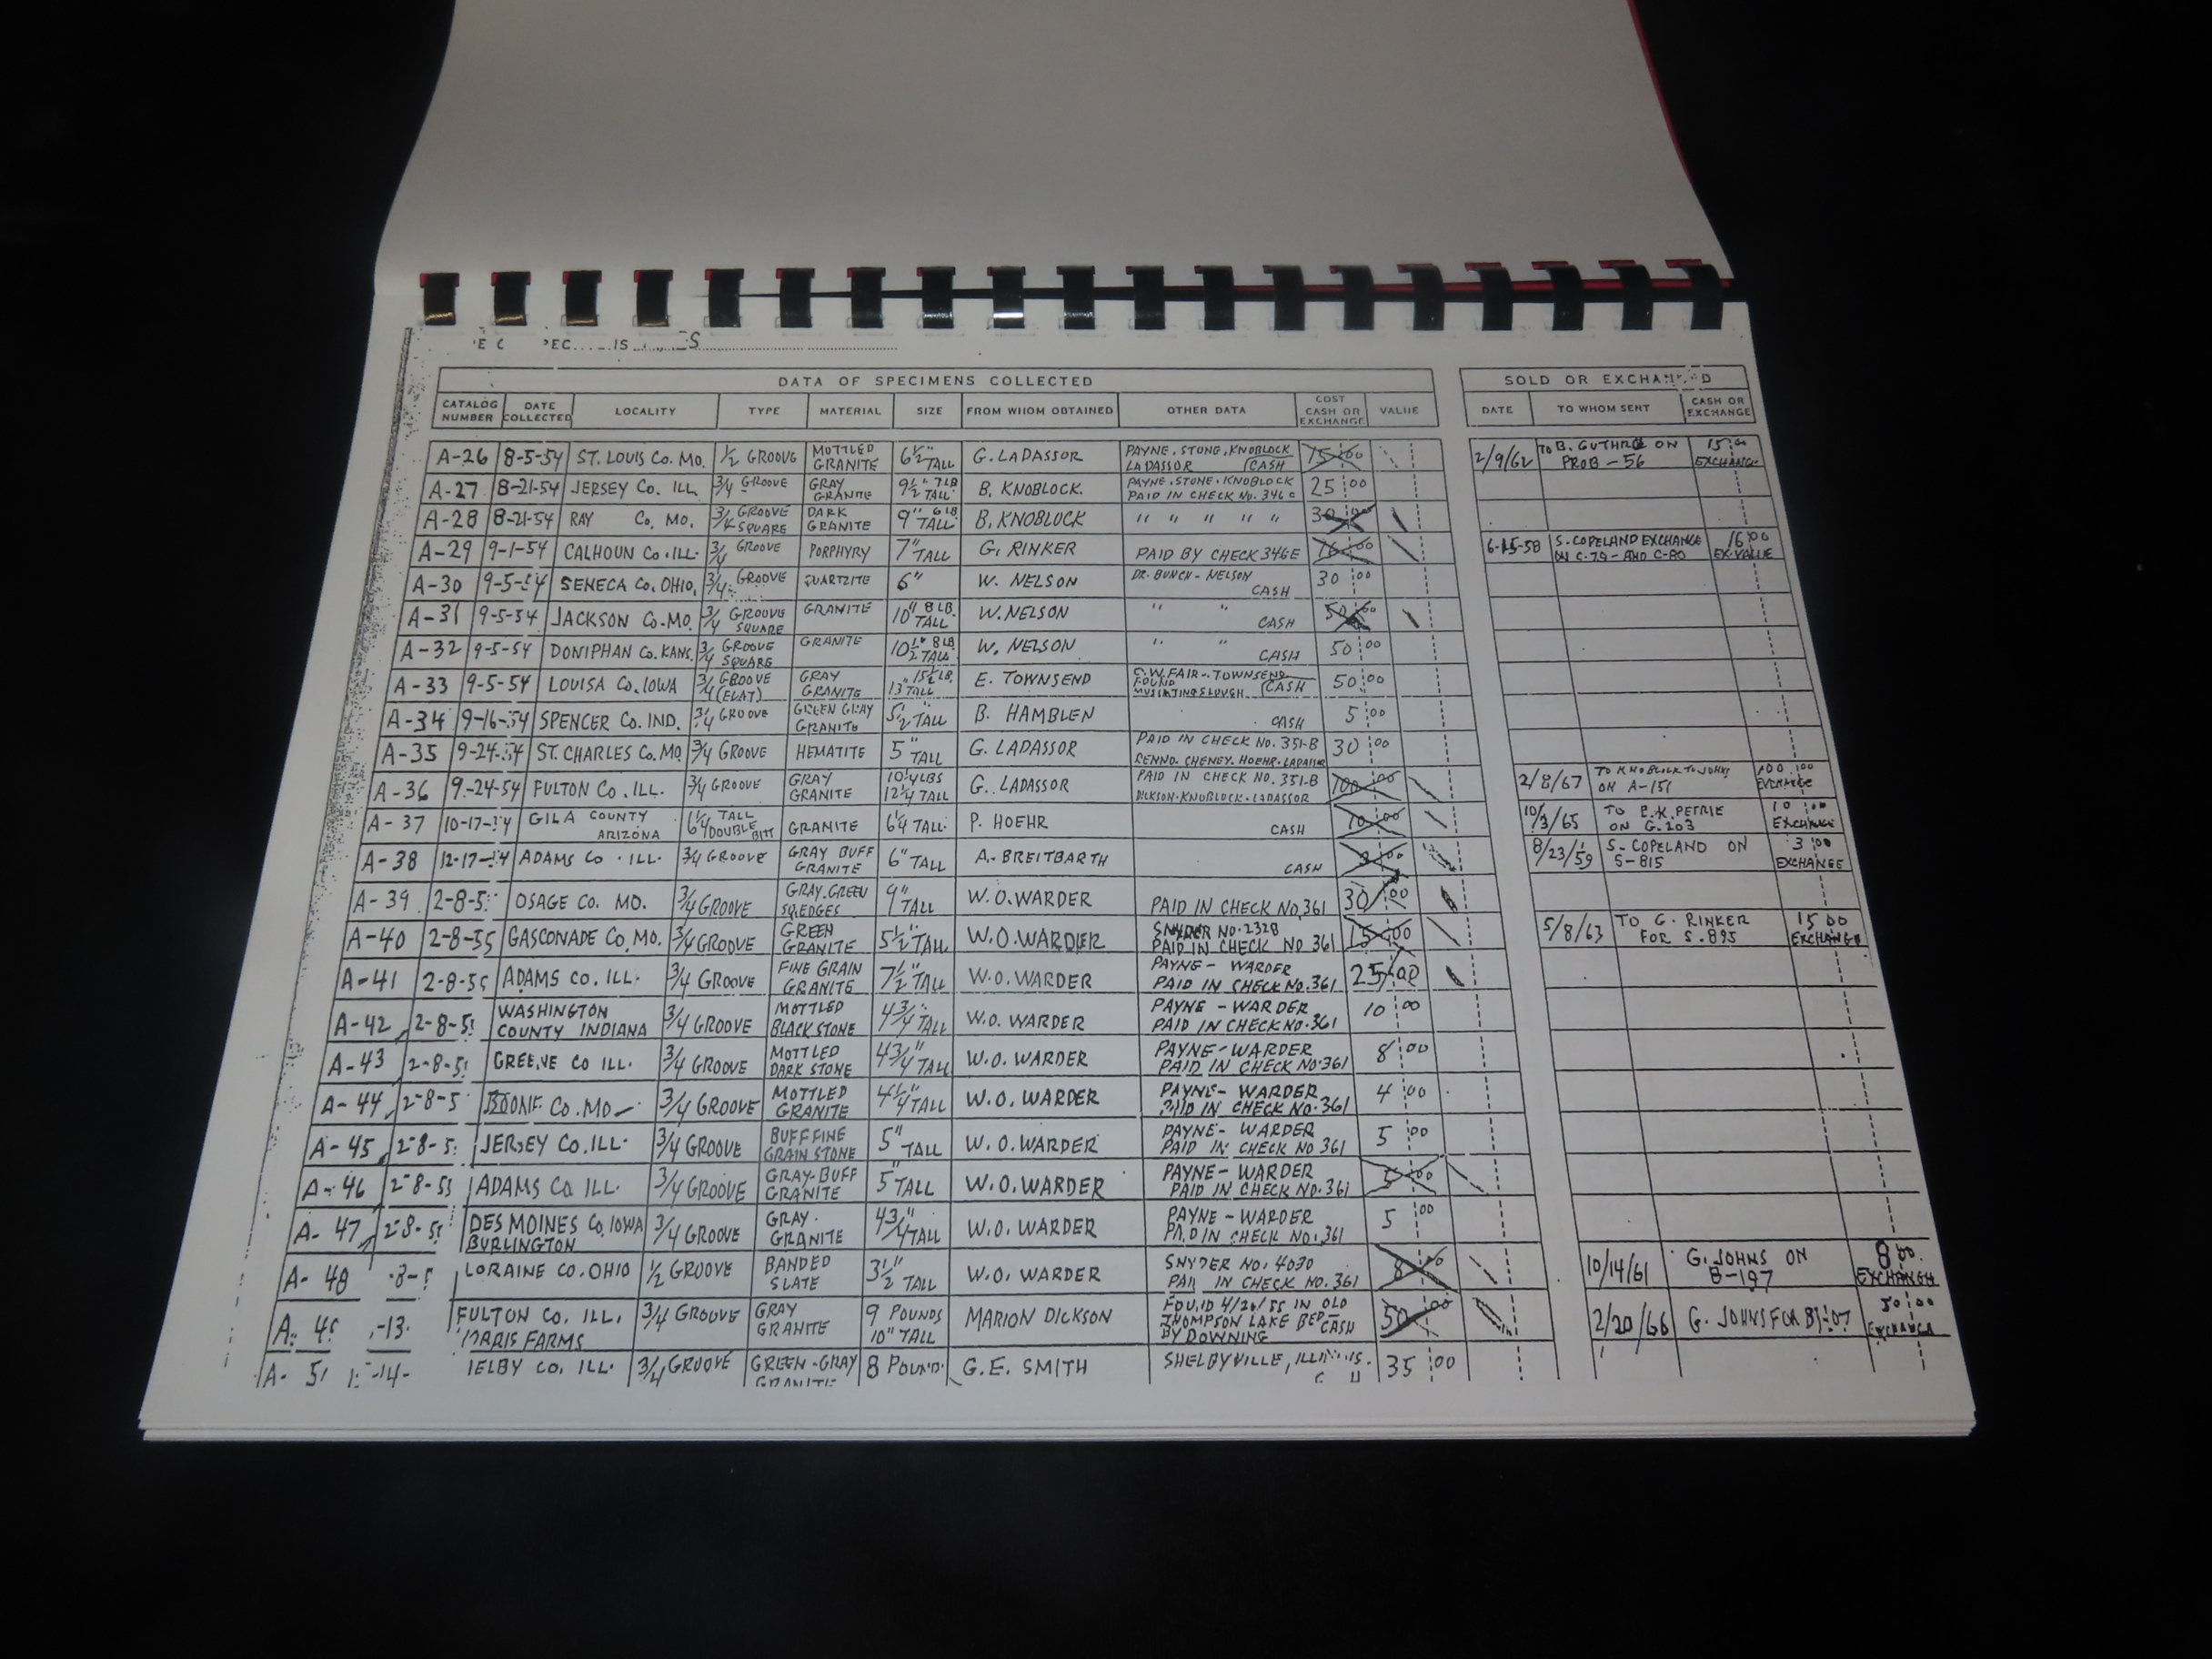 DATA OF SPECIMENS COLLECTED
SOLD OR EXCHANGED
CATALOG NUMBER DATE COLLECTED LOCALITY TYPE MATERIAL SIZE FROM WHOM OBTAINED OTHER DATA COST CASH OR EXCHANGE VALUE DATE TO WHOM SENT CASH OR EXCHANGE
A-26 8-5-54 ST. LOUIS CO. MO. 1/2 GROOVE MOTTLED GRANITE 6 1/2" TALL G. LADASSOR PAYNE. STONE. KNOBLOCK LADASSOR CASH 15 00 2/9/62 TO B. GUTHRIE ON PROB-56 15 00 EXCHANGE
A-27 8-21-54 JERSEY CO. ILL 3/4 GROOVE GRAY GRANITE 9 1/2" 7 LB TALL B. KNOBLOCK. PAYNE. STONE. KNOBLOCK PAID IN CHECK NO. 346 25 00
A-28 8-21-54 RAY CO. MO. 3/4 GROOVE SQUARE DARK GRANITE 9" 6 LB TALL B. KNOBLOCK " " " " " 30 00
A-29 9-1-54 CALHOUN CO. ILL. 3/4 GROOVE PORPHYRY 7" TALL G. RINKER PAID BY CHECK 346E 16 00 6-15-58 S. COPELAND EXCHANGE ON C-79- AND C-80 16 00 EX-VALUE
A-30 9-5-54 SENECA CO. OHIO, 3/4 GROOVE QUARTZITE 6" W. NELSON DR. BUNCH - NELSON CASH 30 00
A-31 9-5-54 JACKSON CO. MO. 3/4 GROOVE SQUARE GRANITE 10" 8 LB. TALL W. NELSON " " CASH 50 00
A-32 9-5-54 DONIPHAN CO. KANS. 3/4 GROOVE SQUARE GRANITE 10 1/2" 8 LB TALL W. NELSON " " CASH 50 00
A-33 9-5-54 LOUISA CO. IOWA 3/4 GROOVE (FLAT) GRAY GRANITE 13" 15 1/2 LB. TALL E. TOWNSEND W. FAIR - TOWNSEND FOUND SLOUGH CASH 50 00
A-34 9-16-54 SPENCER CO. IND. 3/4 GROOVE GREEN GRAY GRANITE 5 1/2" TALL B. HAMBLEN CASH 5 00
A-35 9-24-54 ST. CHARLES CO. MO 3/4 GROOVE HEMATITE 5" TALL G. LADASSOR PAID IN CHECK NO. 351-B RENNO. CHENEY. HOEHR. LADASSOR 30 00
A-36 9-24-54 FULTON CO. ILL. 3/4 GROOVE GRAY GRANITE 10 1/4 LBS 12 1/4 TALL G. LADASSOR PAID IN CHECK NO. 351-B DICKSON. KNOBLOCK. LADASSOR 100 00 2/8/67 TO KNOBLOCK TO JOHNS ON A-151 100 00 EXCHANGE
A-37 10-17-54 GILA COUNTY ARIZONA 6 1/4 TALL DOUBLE BITT GRANITE 6 1/4 TALL P. HOEHR CASH 10 00 10/3/65 TO E.K. PETRIE ON G.203 10 00 EXCHANGE
A-38 12-17-54 ADAMS CO. ILL. 3/4 GROOVE GRAY BUFF GRANITE 6" TALL A. BREITBARTH CASH 3 00 8/23/59 S. COPELAND ON S-815 3 00 EXCHANGE
A-39 2-8-5 OSAGE CO. MO. 3/4 GROOVE GRAY. GREEN SQ. EDGES 9" TALL W.O. WARDER PAID IN CHECK NO. 361 30 00
A-40 2-8-55 GASCONADE CO, MO. 3/4 GROOVE GREEN GRANITE 5 1/2" TALL W.O. WARDER SNYDER NO. 2328 PAID IN CHECK NO 361 15 00 5/8/63 TO G. RINKER FOR S.895 15 00 EXCHANGE
A-41 2-8-55 ADAMS CO. ILL. 3/4 GROOVE FINE GRAIN GRANITE 7 1/2" TALL W.O. WARDER PAYNE - WARDER PAID IN CHECK NO. 361 25 00
A-42 2-8-5 WASHINGTON COUNTY INDIANA 3/4 GROOVE MOTTLED BLACK STONE 4 3/4" TALL W.O. WARDER PAYNE - WARDER PAID IN CHECK NO. 361 10 00
A-43 2-8-5 GREENE CO ILL. 3/4 GROOVE MOTTLED DARK STONE 4 3/4" TALL W.O. WARDER PAYNE-WARDER PAID IN CHECK NO. 361 8 00
A-44 2-8-5 BOONE CO. MO 3/4 GROOVE MOTTLED GRANITE 4 1/4" TALL W.O. WARDER PAYNE- WARDER PAID IN CHECK NO. 361 4 00
A-45 2-8-5 JERSEY CO. ILL. 3/4 GROOVE BUFF FINE GRAIN STONE 5" TALL W.O. WARDER PAYNE- WARDER PAID IN CHECK NO 361 5 00
A-46 2-8-55 ADAMS CO. ILL. 3/4 GROOVE GRAY-BUFF GRANITE 5" TALL W.O. WARDER PAYNE- WARDER PAID IN CHECK NO. 361 5 00
A-47 2-8-55 DES MOINES CO, IOWA BURLINGTON 3/4 GROOVE GRAY. GRANITE 4 3/4" TALL W.O. WARDER PAYNE - WARDER PAID IN CHECK NO. 361 5 00
A-48 -8-5 LORAINE CO. OHIO 1/2 GROOVE BANDED SLATE 3 1/2" TALL W.O. WARDER SNYDER NO. 4030 PAID IN CHECK NO. 361 8 00 10/14/61 G. JOHNS ON B-197 8 00 EXCHANGE
A- -13- FULTON CO. ILL. FARMS 3/4 GROOVE GRAY GRANITE 9 POUNDS 10" TALL MARION DICKSON FOUND 4/26/55 IN OLD THOMPSON LAKE BED- CASH BY DOWNING 50 00 2/20/66 G. JOHNS FOR 50 00 EXCHANGE
A- -14- ELBY CO. ILL. 3/4 GROOVE GREEN-GRAY GRANITE 8 POUND G.E. SMITH SHELBYVILLE, ILLINOIS. 35 00